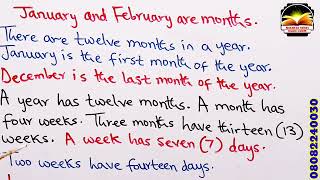 January and February are months.
There are twelve months in a year.
January is the first month of the year.
December is the last month of the year.
A year has twelve months. A month has
four weeks. Three months have thirteen (13)
weeks. A week has seven (7) days.
Two weeks have fourteen days.
08082240030